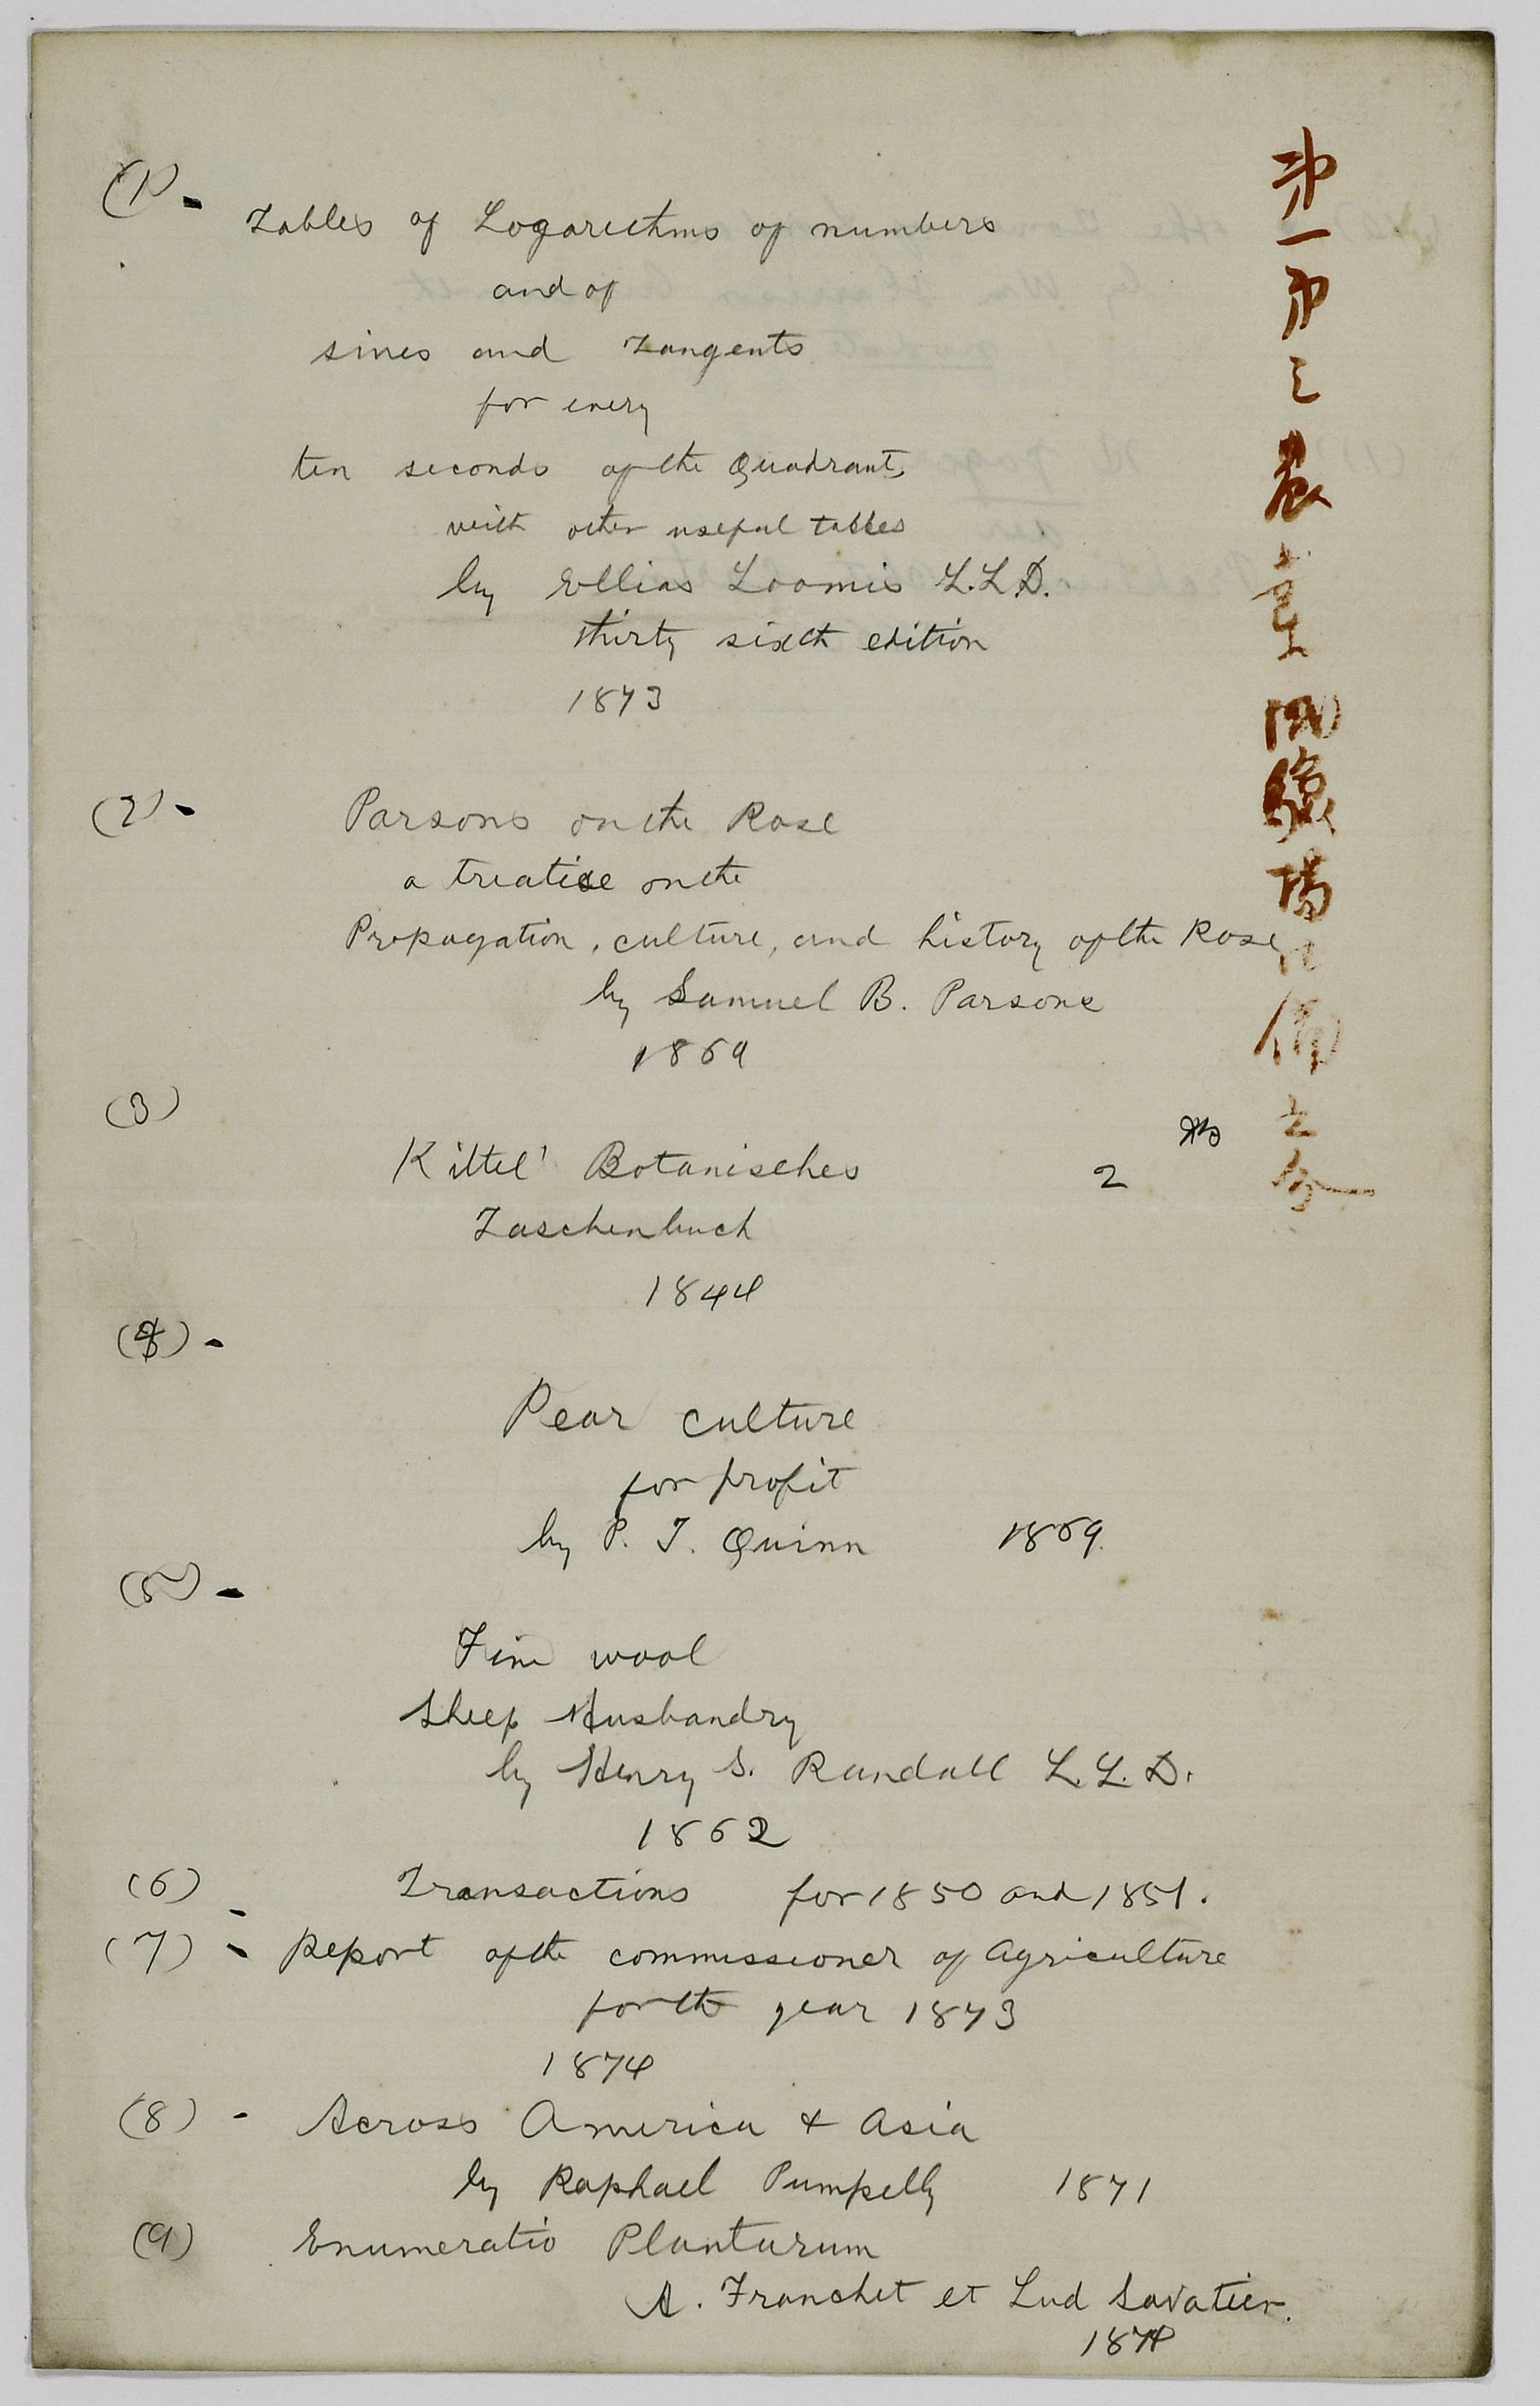 (1) - Tables of Logarithms of numbers
and of
sines and Tangents
for every
ten seconds of the Quadrant,
with other useful tables
by Ellias Loomis L.L.D.
thirty sixth edition
1873
(2) - Parsons on the Rose
a treatise on the
Propagation, culture, and history of the Rose
by Samuel B. Parsons
1869
(3)
Kittel' Botanisches 2
Taschenbuch
1844
(4) -
Pear culture
for profit
by P. T. Quinn 1869.
(5) -
Fine wool
Sheep Husbandry
by Henry S. Randall L.L.D.
1862
(6) - Transactions for 1850 and 1851.
(7) - Report of the commissioner of Agriculture
for the year 1873
1874
(8) - Across America & Asia
by Raphael Pumpelly 1871
(9) Enumeratio Plantarum
A. Franchet et Lud Savatier.
187
第一